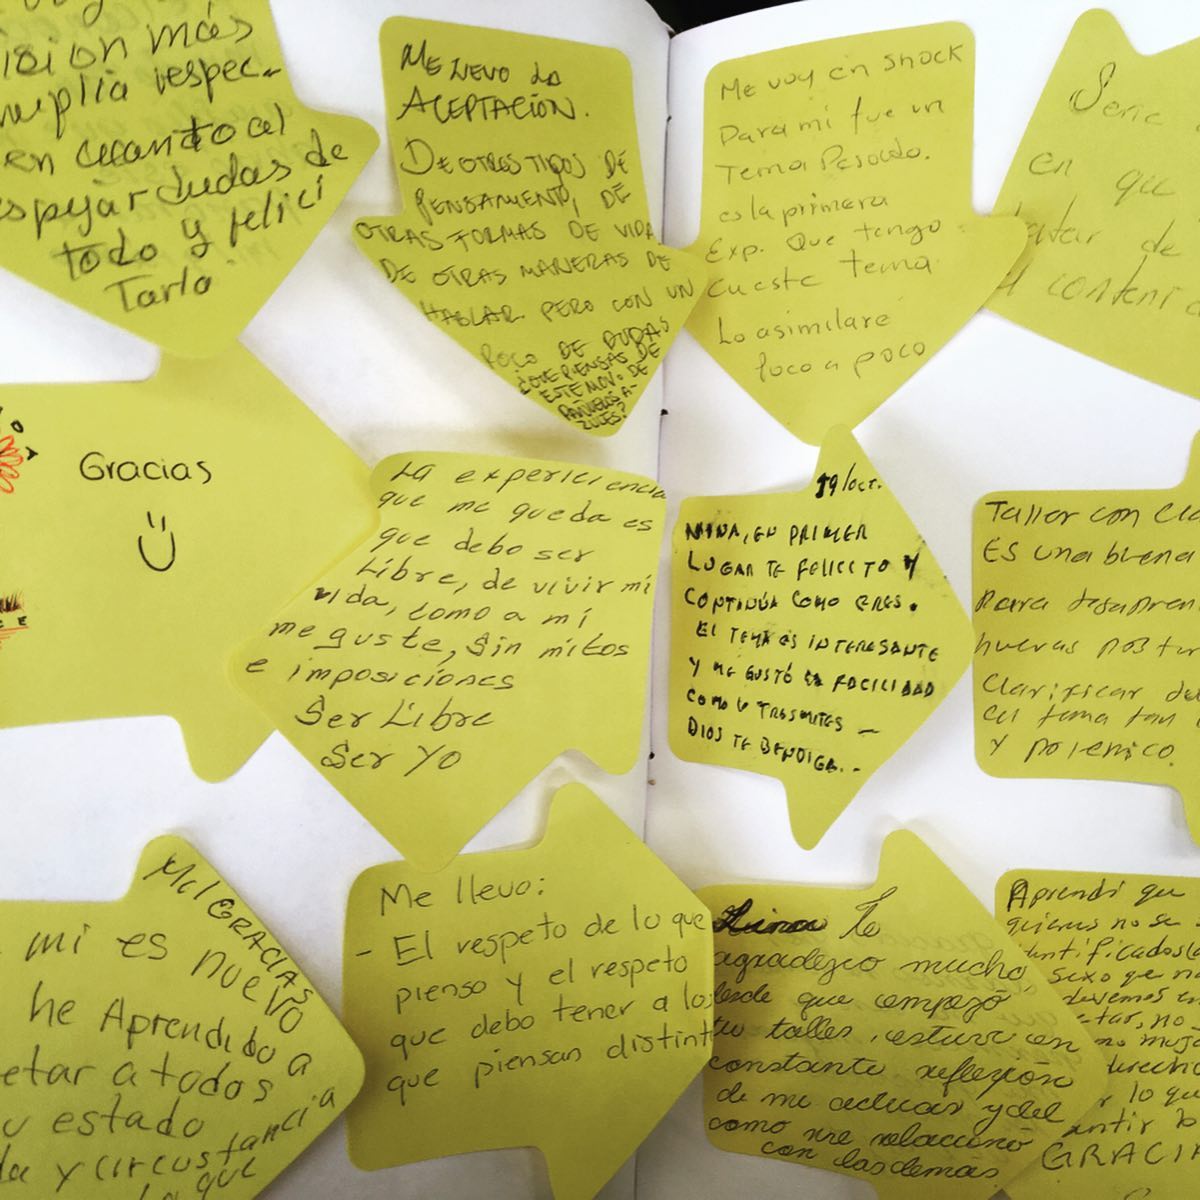 ision más
mplia respec-
en cuanto al
spejar dudas de
todo y felici
Tarlo
ME LLEVO LA
ACEPTACIÓN.
DE OTROS TIPOS DE
PENSAMIENTO, DE
OTRAS FORMAS DE VIDA
DE OTRAS MANERAS DE
HABLAR PERO CON UN
POCO DE DUDAS
¿QUE PIENSAS DE
ESTE MOV. DE
PAÑUELOS A-
ZULES?
Me voy en shock
Para mi fue un
Tema Pesado.
es la primera
Exp. Que tengo
cueste tema
Lo asimilare
poco a poco
Seric
en que
tatar de
el conteni
Gracias
La expericiencia
que me queda es
que debo ser
Libre, de vivir mi
vida, como a mí
me guste, sin mitos
e imposiciones
Ser Libre
Ser Yo
19/oct.
EN PRIMER
LUGAR TE FELICITO Y
CONTINÚA COMO ERES.
EL TEMA ES INTERESANTE
Y ME GUSTÓ LA FACILIDAD
COMO LO TRASMITES -
DIOS TE BENDIGA.-
Taller con cla
ES una buena
para desapren
nuevas postur
Clarificar du
el tema tan
y polemico.
MIL GRACIAS
mi es nuevo
he Aprendido a
etar a todos
u estado
da y circustancia
la que
Me llevo:
- El respeto de lo que
pienso y el respeto
que debo tener a los
que piensan distint
Te
agradezco mucho,
desde que empezó
tu taller, estuve en
constante reflexión
de me actuar y del
como me relaciono
con las demás
Aprendí que
quienes no se
antificados(a
sexo que na
devemos
tar, no
no muje
derecho
r lo que
antir lo
GRACIA